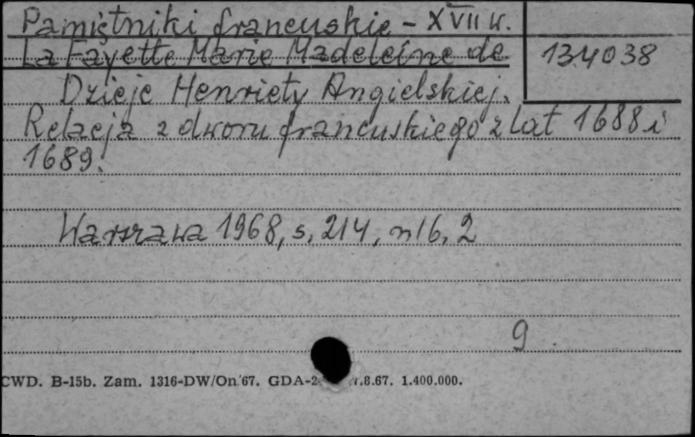 Pamiętniki francuskie - XVII w.
La Fayette Marie Madeleine de
134038
Dzieje Henriety Angielskiej.
Relacja z dworu francuskiego z lat 1688 i
1689.
Warszawa 1968, s. 214, nlb. 2
9
CWD. B-15b. Zam. 1316-DW/On/67. GDA-2 .8.67. 1.400.000.